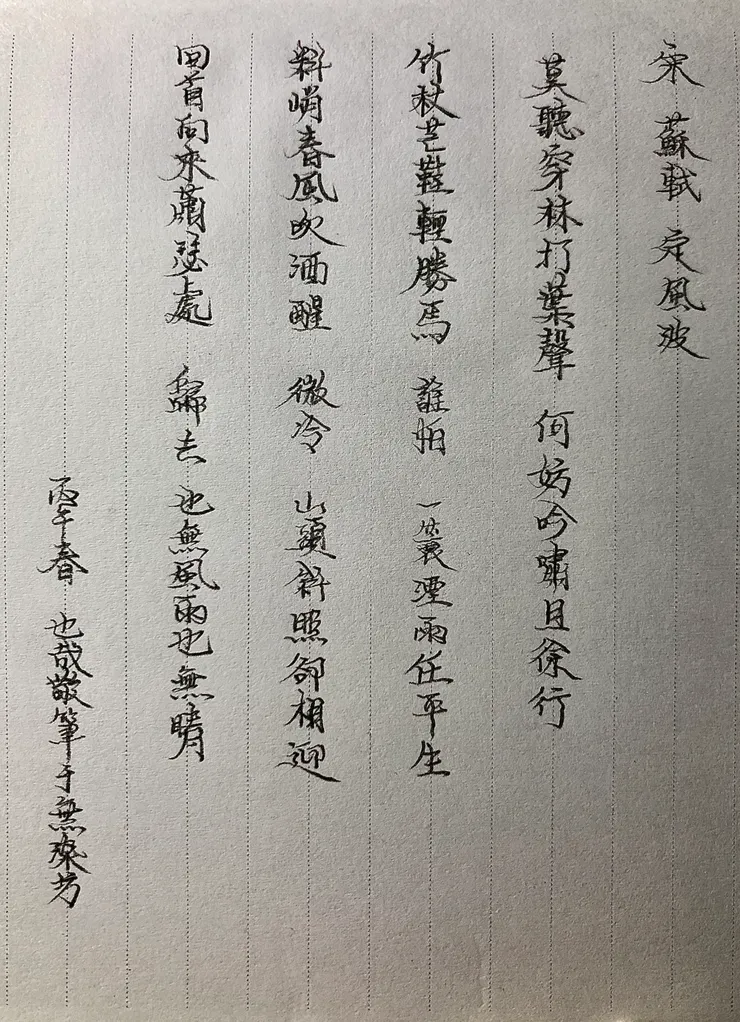 宋 蘇軾 定風波
莫聽穿林打葉聲 何妨吟嘯且徐行
竹杖芒鞋輕勝馬 誰怕 一蓑煙雨任平生
料峭春風吹酒醒 微冷 山頭斜照卻相迎
回首向來蕭瑟處 歸去 也無風雨也無晴
丙午春 也哉敬筆于無染坊